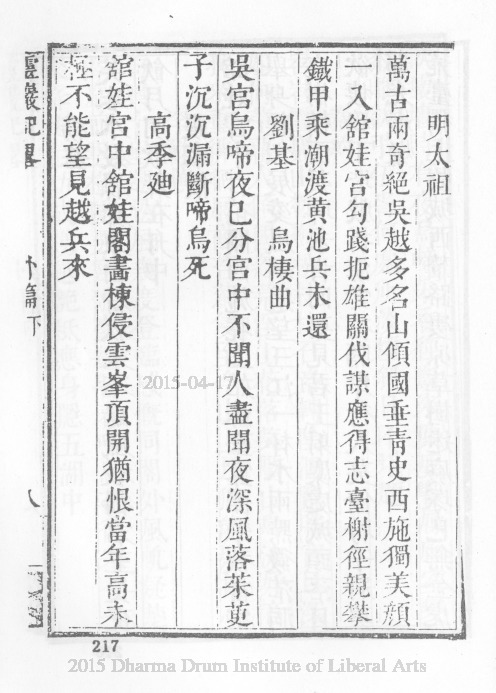 明太祖
萬古兩奇絕吳越多名山傾國垂青史西施獨美顏
入舘娃宮勾踐扼雄關伐謀應得志臺榭徑親攀
鐵甲乘潮渡黄池兵未還
劉基　烏棲曲
吳宮烏啼夜已分宮中不聞人盡聞夜深風落茱萸
子沉沉漏斷啼烏死
高季廸
舘娃宮中舘娃閣畵棟侵雲峯頂開猶恨當年高未
極不能望見越兵來
靈巖記畧
篇下
八
2015-04-17
217
2015 Dharma Drum Institute of Liberal Arts